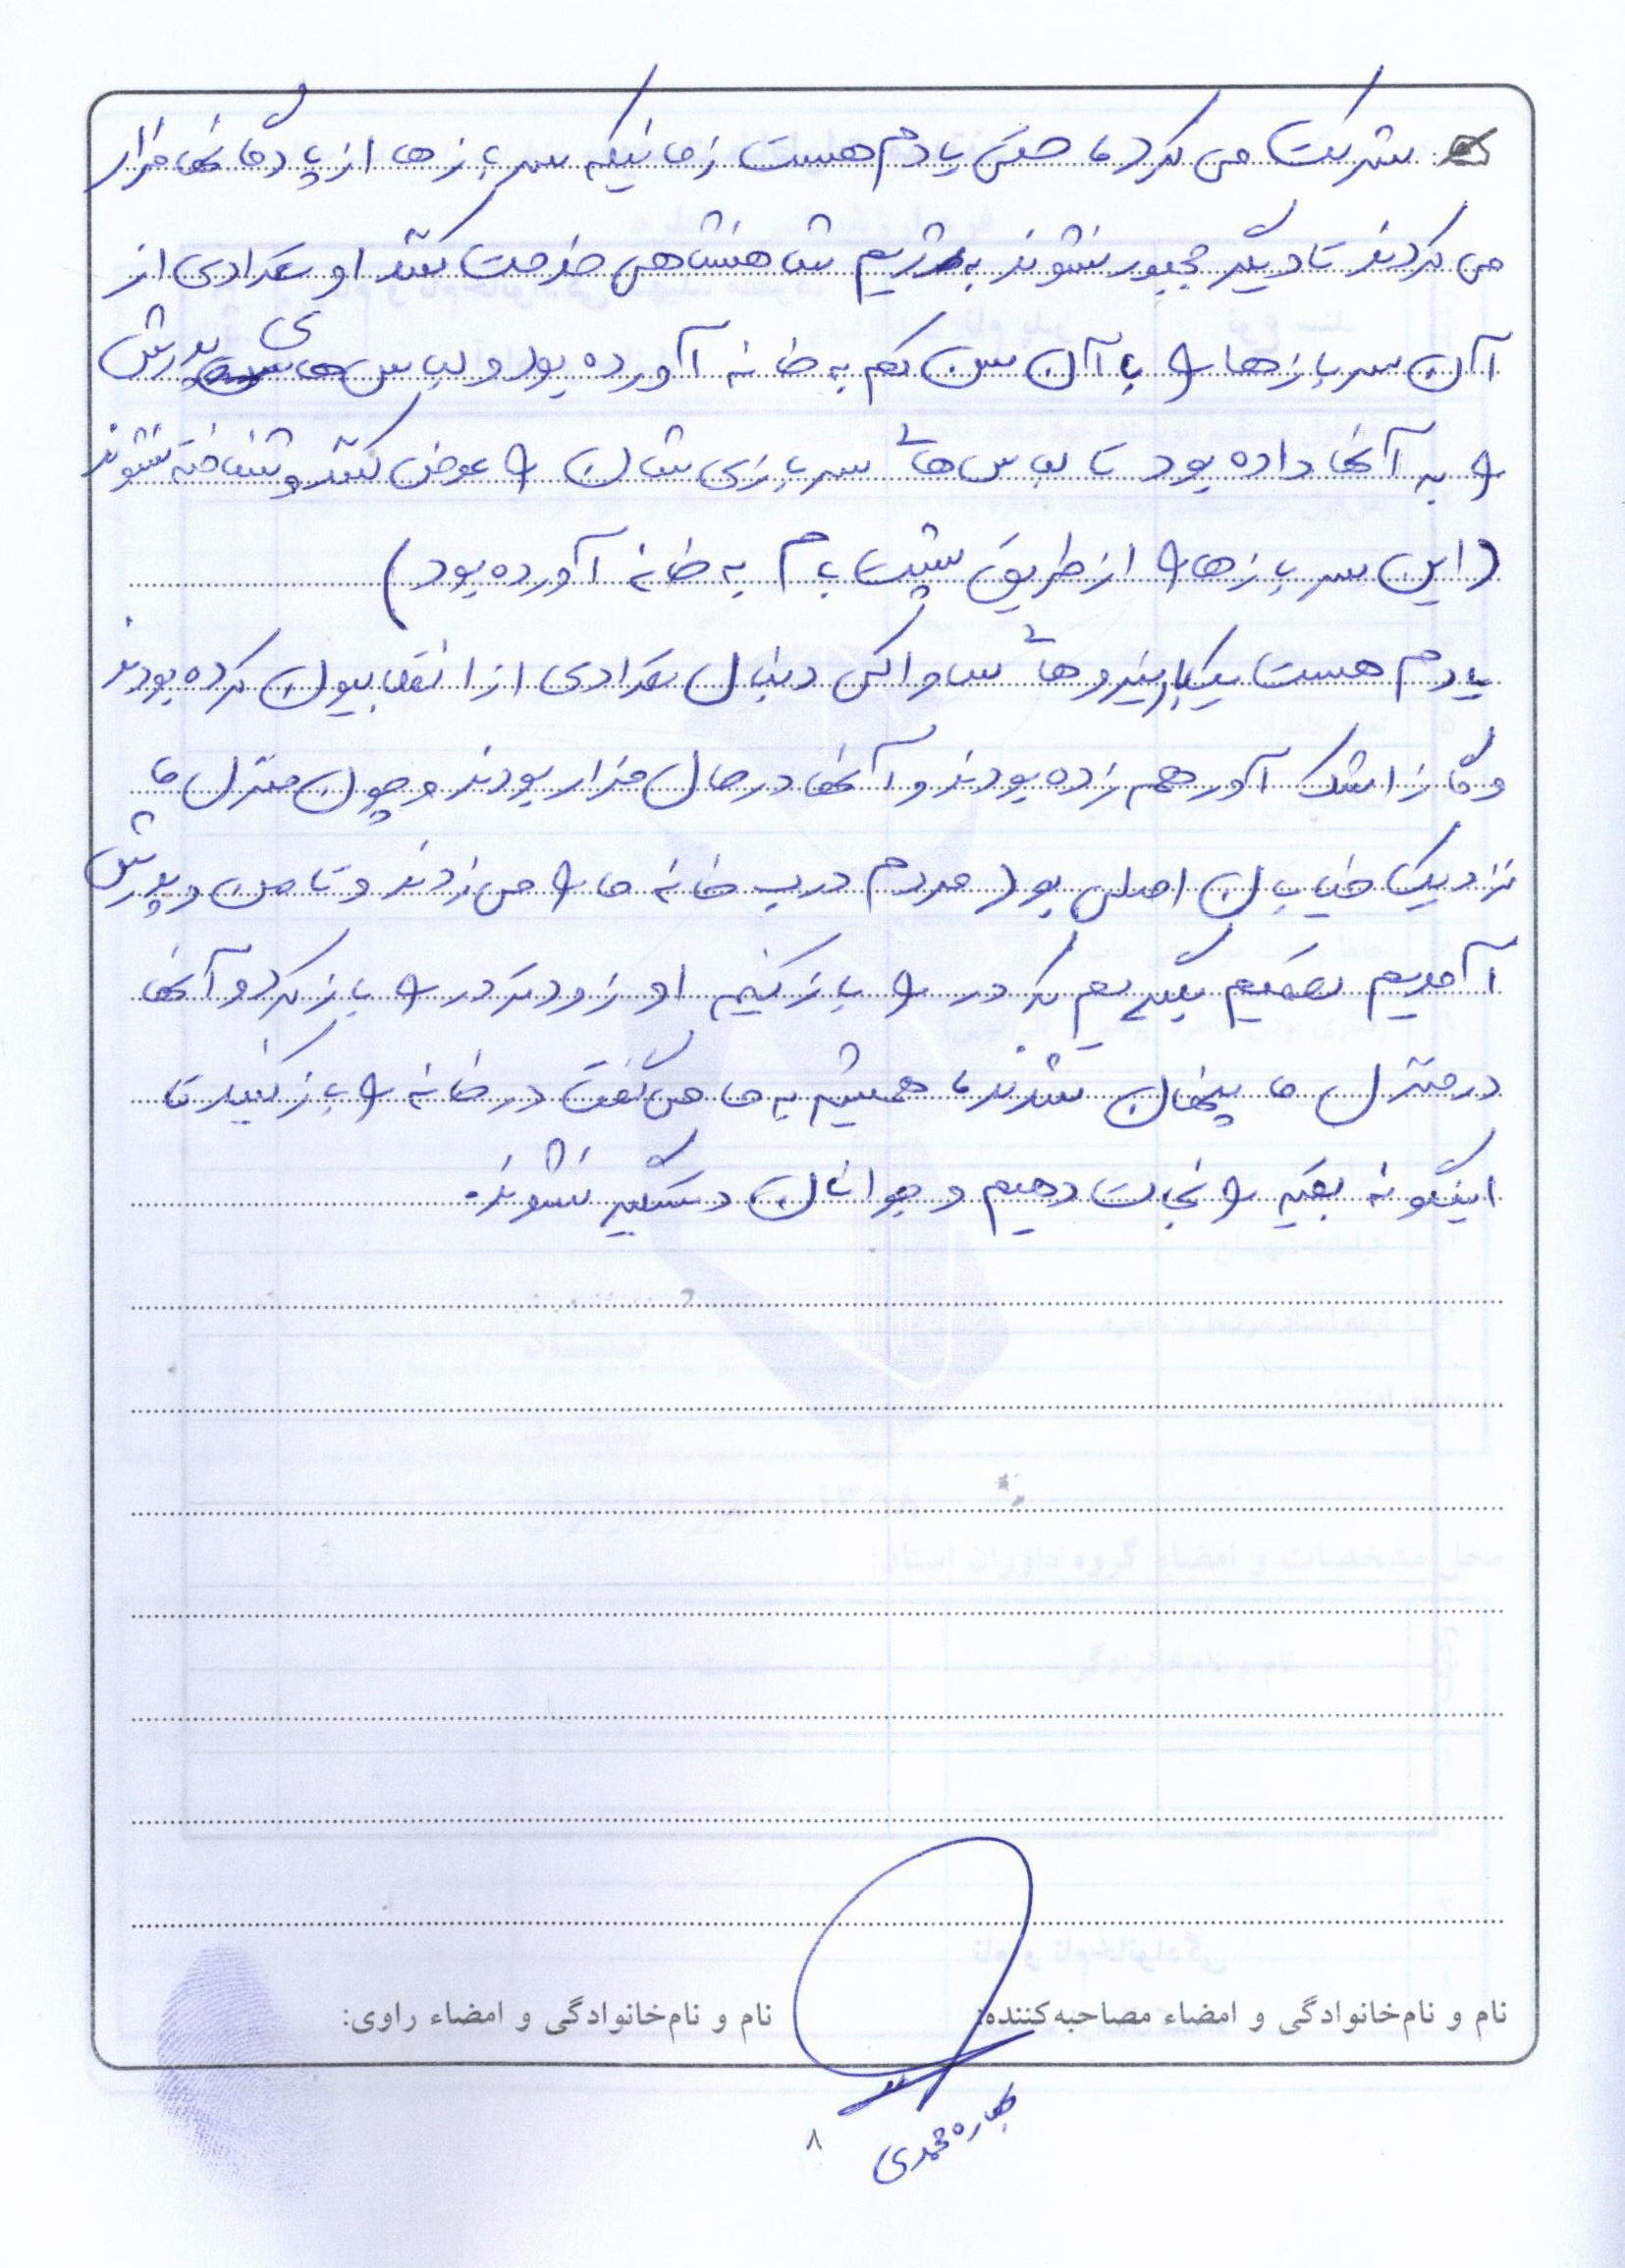 شرکت می کرد، حتی یادم هست زمانیکه سربازها از پادگانها فرار
می کردند تا دیگر مجبور نشوند به رژیم شاهنشاهی خدمت کنند او تعدادی از
آن سربازها را با آن سن کم به خانه آورده بود و لباس های پدرش
را به آنها داده بود تا لباس های سربازی شان را عوض کنند و شناخته نشوند
(این سربازها را از طریق پشت بام به خانه آورده بود)
یادم هست یکبار نیروهای ساواکی دنبال تعدادی از انقلابیون کرده بودند
و گاز اشک آور هم زده بودند و آنها در حال فرار بودند و چون منزل ما
نزدیک خیابان اصلی بود مردم درب خانه ما را می زدند و تا من و پدرش
آمدیم تصمیم بگیریم که در را باز کنیم او زودتر در را باز کرد و آنها
در منزل ما پنهان شدند، همیشه به ما می گفت در خانه را باز کنید تا
اینگونه بقیه را نجات دهیم و جوانان دستگیر نشوند.
نام و نام‌خانوادگی و امضاء مصاحبه‌کننده: نام و نام‌خانوادگی و امضاء راوی:
محمدی
۸